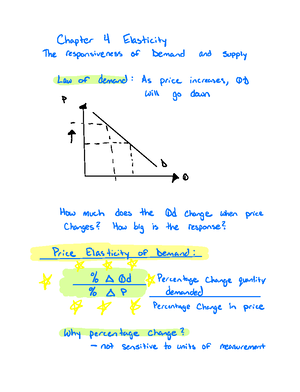 Chapter 4 Elasticity
The responsiveness of Demand and Supply
Law of demand: As price increases, Qd
will go down
P
D
Q
How much does the Qd change when price
changes? How big is the response?
Price Elasticity of Demand:
% Δ Qd
% Δ P
Percentage Change quantity
demanded
Percentage Change in price
Why percentage change?
- not sensitive to units of measurement